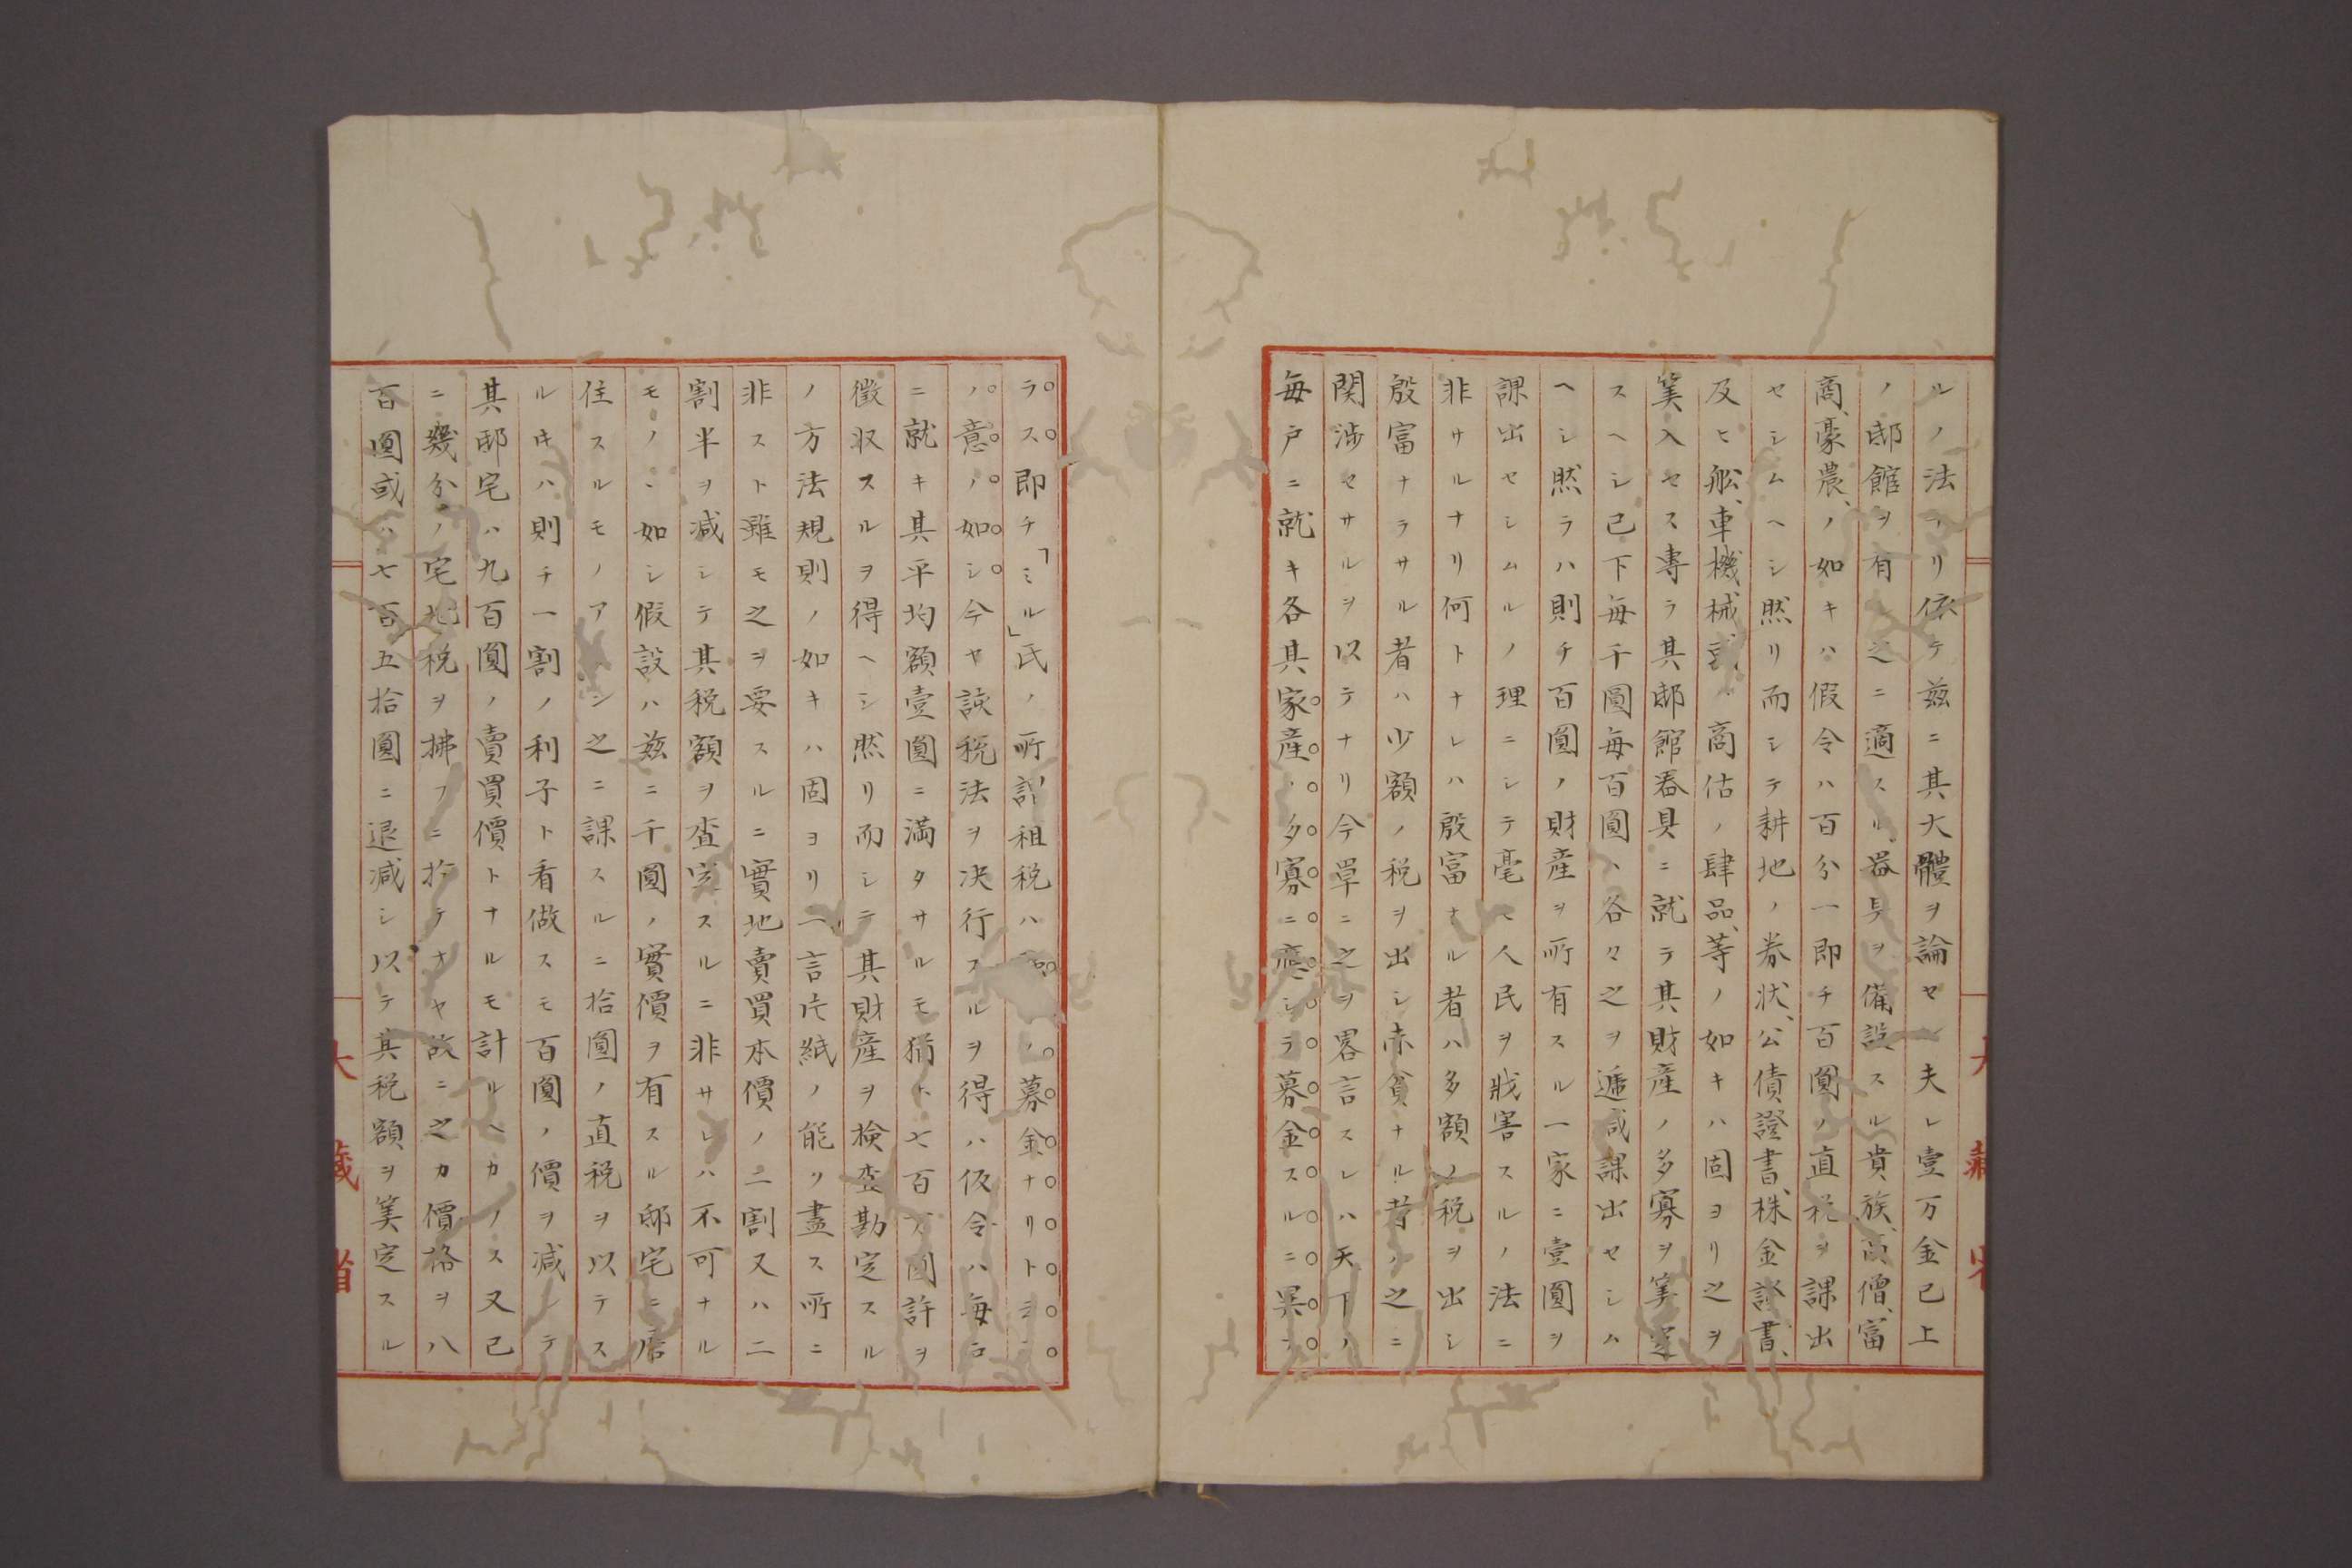 ルノ法アリ依テ茲ニ其大體ヲ論セン夫レ壹万金已上
ノ邸館ヲ有シ之ニ適スル器具ヲ備設スル貴族、高僧、富
商、豪農、ノ如キハ假令ハ百分一即チ百圓ノ直税ヲ課出
セシムヘシ然リ而シテ耕地ノ券状、公債證書、株金證書、
及ヒ舩、車、機械、或ハ商估ノ肆品、等ノ如キハ固ヨリ之ヲ
筭入セス專ラ其邸館器具ニ就テ其財産ノ多寡ヲ筭定
スヘシ已下毎千圓毎百圓ハ各々之ヲ逓減課出セシム
ヘシ然ラハ則チ百圓ノ財産ヲ所有スル一家ニ壹圓ヲ
課出セシムルノ理ニシテ毫モ人民ヲ戕害スルノ法ニ
非サルナリ何トナレハ殷富ナル者ハ多額ノ税ヲ出シ
殷富ナラサル者ハ少額ノ税ヲ出シ赤貧ナル者ハ之ニ
関渉セサルヲ以テナリ今単ニ之ヲ畧言スレハ天下ノ
毎戸ニ就キ各其家産ノ多寡ニ應シテ募金スルニ異ナ
大藏省
ラス即チ「ミル」氏ノ所謂租税ハノ募金ナリトヨシ
ノ意ノ如シ今ヤ該税法ヲ决行スルヲ得ハ仮令ハ毎戸
ニ就キ其平均額壹圓ニ満タサルモ猶ホ七百万圓許ヲ
徴収スルヲ得ヘシ然リ而シテ其財産ヲ検査勘定スル
ノ方法規則ノ如キハ固ヨリ一言片紙ノ能ク盡ス所ニ
非スト雖モ之ヲ要スルニ實地賣買本價ノ二割又ハ二
割半ヲ減シテ其税額ヲ査定スルニ非サレハ不可ナル
モノヽ如シ假設ハ茲ニ千圓ノ實價ヲ有スル邸宅ニ居
住スルモノアランニ之ニ課スルニ拾圓ノ直税ヲ以テス
ルキハ則チ一割ノ利子ト看做スモ百圓ノ價ヲ減シテ
其邸宅ハ九百圓ノ賣買價トナルモ計ルヘカラス又已
ニ幾分ノ宅地税ヲ拂フニ於テオヤ故ニ之カ價格ヲ八
百圓或ハ七百五拾圓ニ退減シ以テ其税額ヲ筭定スル
大藏省